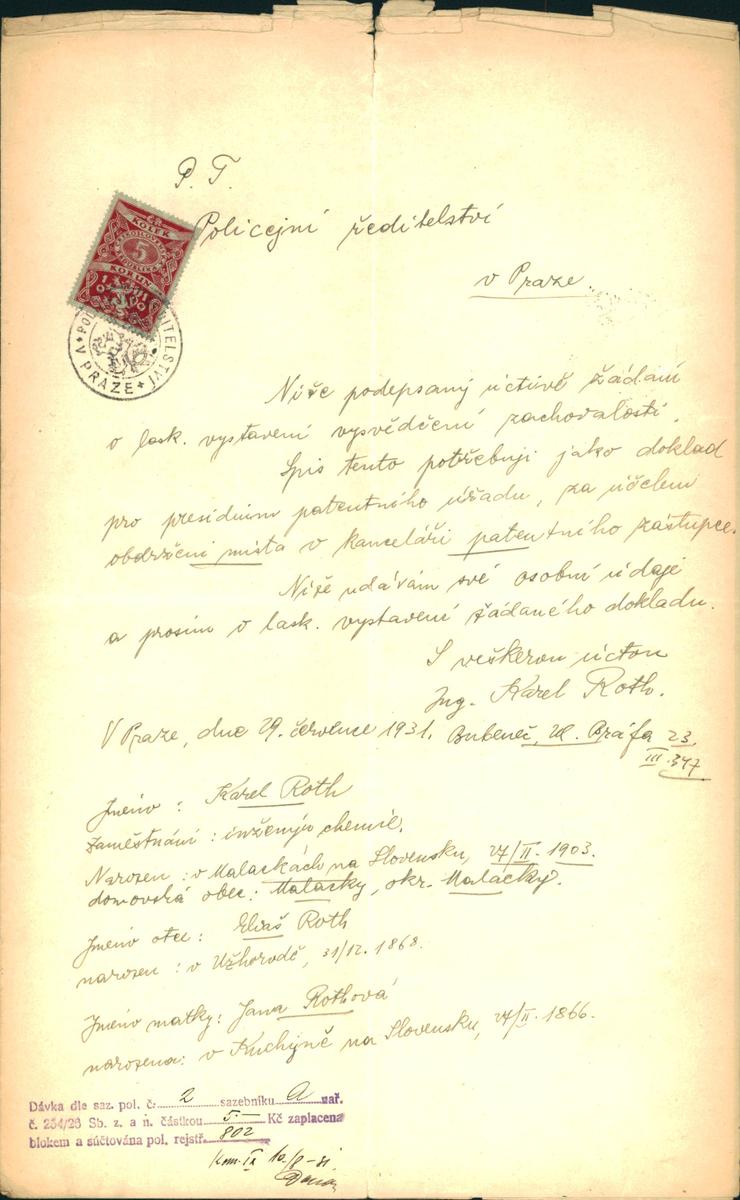 P. T.
Policejní ředitelství
v Praze.
ČR
KOLEK
5
KORUN
V PRAZE
Níže podepsaný uctivě žádám
o lask. vystavení vysvědčení zachovalosti.
Spis tento potřebuji jako doklad
pro presidium patentního úřadu, za účelem
obdržení místa v kanceláři patentního zástupce.
Níže udávám své osobní údaje
a prosím o lask. vystavení žádaného dokladu.
S veškerou úctou
Ing. Karel Roth.
V Praze, dne 29. července 1931. Bubeneč, Ul. Bráfa 23.
III. 347
Jméno : Karel Roth
Zaměstnání : inženýr chemie.
Narozen : v Malackách na Slovensku, 27/II. 1903.
domovská obec: Malacky, okr. Malacky.
Jméno otce : Eliáš Roth
narozen : v Užhorodě, 31/12. 1868.
Jméno matky: Jana Rothová
narozena: v Kuchyně na Slovensku, 27/II. 1866.
Dávka dle saz. pol. č. 2 sazebníku A nař.
č. 254/26 Sb. z. a n. částkou 5.— Kč zaplacena
blokem a súčtována pol. rejstř. 802
10/8-31